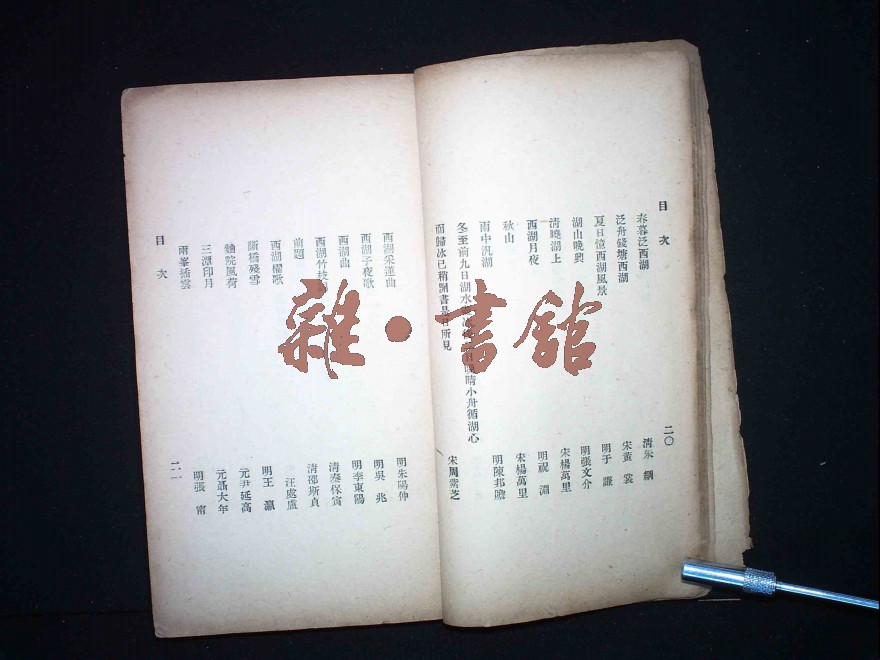 目次
二〇
春暮泛西湖
清朱
泛舟錢塘西湖
宋黃裳
夏日憶西湖風景
明于謙
湖山晚興
明張文介
清曉湖上
宋楊萬里
西湖月夜
明祝淵
秋山
宋楊萬里
雨中汎湖
明陳邦瞻
冬至前九日湖水 晚晴小舟循湖心
而歸冰已稍開書是日所見
宋周紫芝
西湖采蓮曲
明朱陽仲
西湖子夜歌
明吳兆
西湖曲
明李東陽
西湖竹枝
清秦保寅
前題
清邵斯貞
西湖櫂歌
汪處廬
斷橋殘雪
明王瀛
麯院風荷
元尹延高
三潭印月
元聶大年
兩峯插雲
明張甯
目次
二一
雜·書館